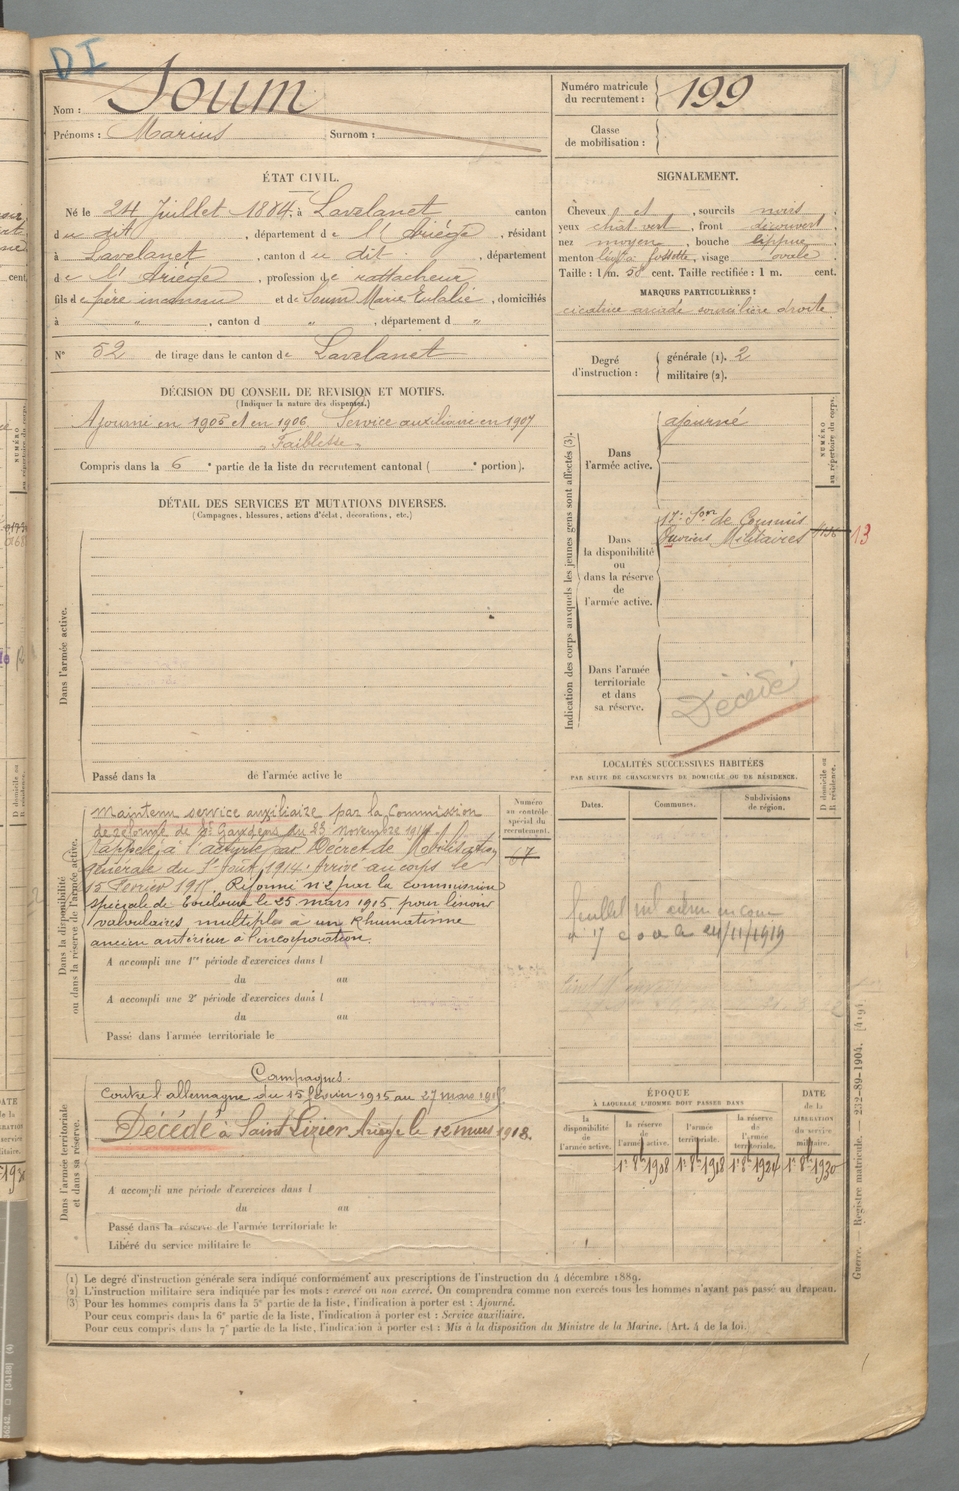 DI
Nom : Soum
Prénoms : Marius Surnom :
Numéro matricule du recrutement : 199
Classe de mobilisation :
ÉTAT CIVIL.
Né le 24 Juillet 1884, à Lavelanet canton
du dit, département de l'Ariège, résidant
à Lavelanet, canton du dit, département
de l'Ariège, profession de rattacheur
fils de père inconnu et de Soum Marie Eulalie, domiciliés
à " , canton d " , département d "
N° 52 de tirage dans le canton de Lavelanet
SIGNALEMENT.
Cheveux et , sourcils noirs
yeux chât vert, front découvert
nez moyen, bouche lippue
menton fossette, visage ovale
Taille : 1 m. 58 cent. Taille rectifiée : 1 m. cent.
MARQUES PARTICULIÈRES :
cicatrice arcade sourcilière droite
Degré d'instruction : générale (1). 2
militaire (2).
DÉCISION DU CONSEIL DE REVISION ET MOTIFS.
(Indiquer la nature des dispenses.)
Ajourné en 1905 et en 1906. Service auxiliaire en 1907
" Faiblesse "
Compris dans la 6e partie de la liste du recrutement cantonal ( e portion).
DÉTAIL DES SERVICES ET MUTATIONS DIVERSES.
(Campagnes, blessures, actions d'éclat, décorations, etc.)
Dans l'armée active.
Passé dans la de l'armée active le
Indication des corps auxquels les jeunes gens sont affectés (3).
NUMÉRO au répertoire du corps.
Dans l'armée active.
ajourné
Dans la disponibilité ou dans la réserve de l'armée active.
17e Son de Commis
Ouvriers Militaires 13
Dans l'armée territoriale et dans sa réserve.
Décédé
LOCALITÉS SUCCESSIVES HABITÉES
PAR SUITE DE CHANGEMENTS DE DOMICILE OU DE RÉSIDENCE.
D domicile ou R résidence.
Dates. Communes. Subdivisions de région.
24/11/1919
Dans la disponibilité ou dans la réserve de l'armée active.
Numéro au contrôle spécial du recrutement.
67
Maintenu service auxiliaire par la Commission
de réforme de St Gaudens du 23 novembre 1914
Rappelé à l'activité par Décret de Mobilisation
générale du 1er Août 1914. Arrivé au corps le
15 Février 1915. Réformé n°2 par la commission
spéciale de Toulouse le 25 mars 1915 pour lésions
valvulaires multiples à un Rhumatisme
ancien antérieur à l'incorporation.
A accompli une 1re période d'exercices dans l
du au
A accompli une 2e période d'exercices dans l
du au
Passé dans l'armée territoriale le
Dans l'armée territoriale et dans sa réserve.
Campagnes.
Contre l'allemagne du 15 février 1915 au 27 mars 1915.
Décédé à Saint Lizier Ariège le 12 mars 1918.
A accompli une période d'exercices dans l
du au
Passé dans la réserve de l'armée territoriale le
Libéré du service militaire le
ÉPOQUE
À LAQUELLE L'HOMME DOIT PASSER DANS
DATE de la LIBÉRATION du service militaire.
la disponibilité de l'armée active.
la réserve de l'armée active.
l'armée territoriale.
la réserve de l'armée territoriale.
1er 8bre 1908 1er 8bre 1918 1er 8bre 1924 1er 8bre 1930
(1) Le degré d'instruction générale sera indiqué conformément aux prescriptions de l'instruction du 4 décembre 1889.
(2) L'instruction militaire sera indiquée par les mots : exercé ou non exercé. On comprendra comme non exercés tous les hommes n'ayant pas passé au drapeau.
(3) Pour les hommes compris dans la 5e partie de la liste, l'indication à porter est : Ajourné.
Pour ceux compris dans la 6e partie de la liste, l'indication à porter est : Service auxiliaire.
Pour ceux compris dans la 7e partie de la liste, l'indication à porter est : Mis à la disposition du Ministre de la Marine. (Art. 4 de la loi.)
Guerre. — Registre matricule. — 232-89-1904. [419].